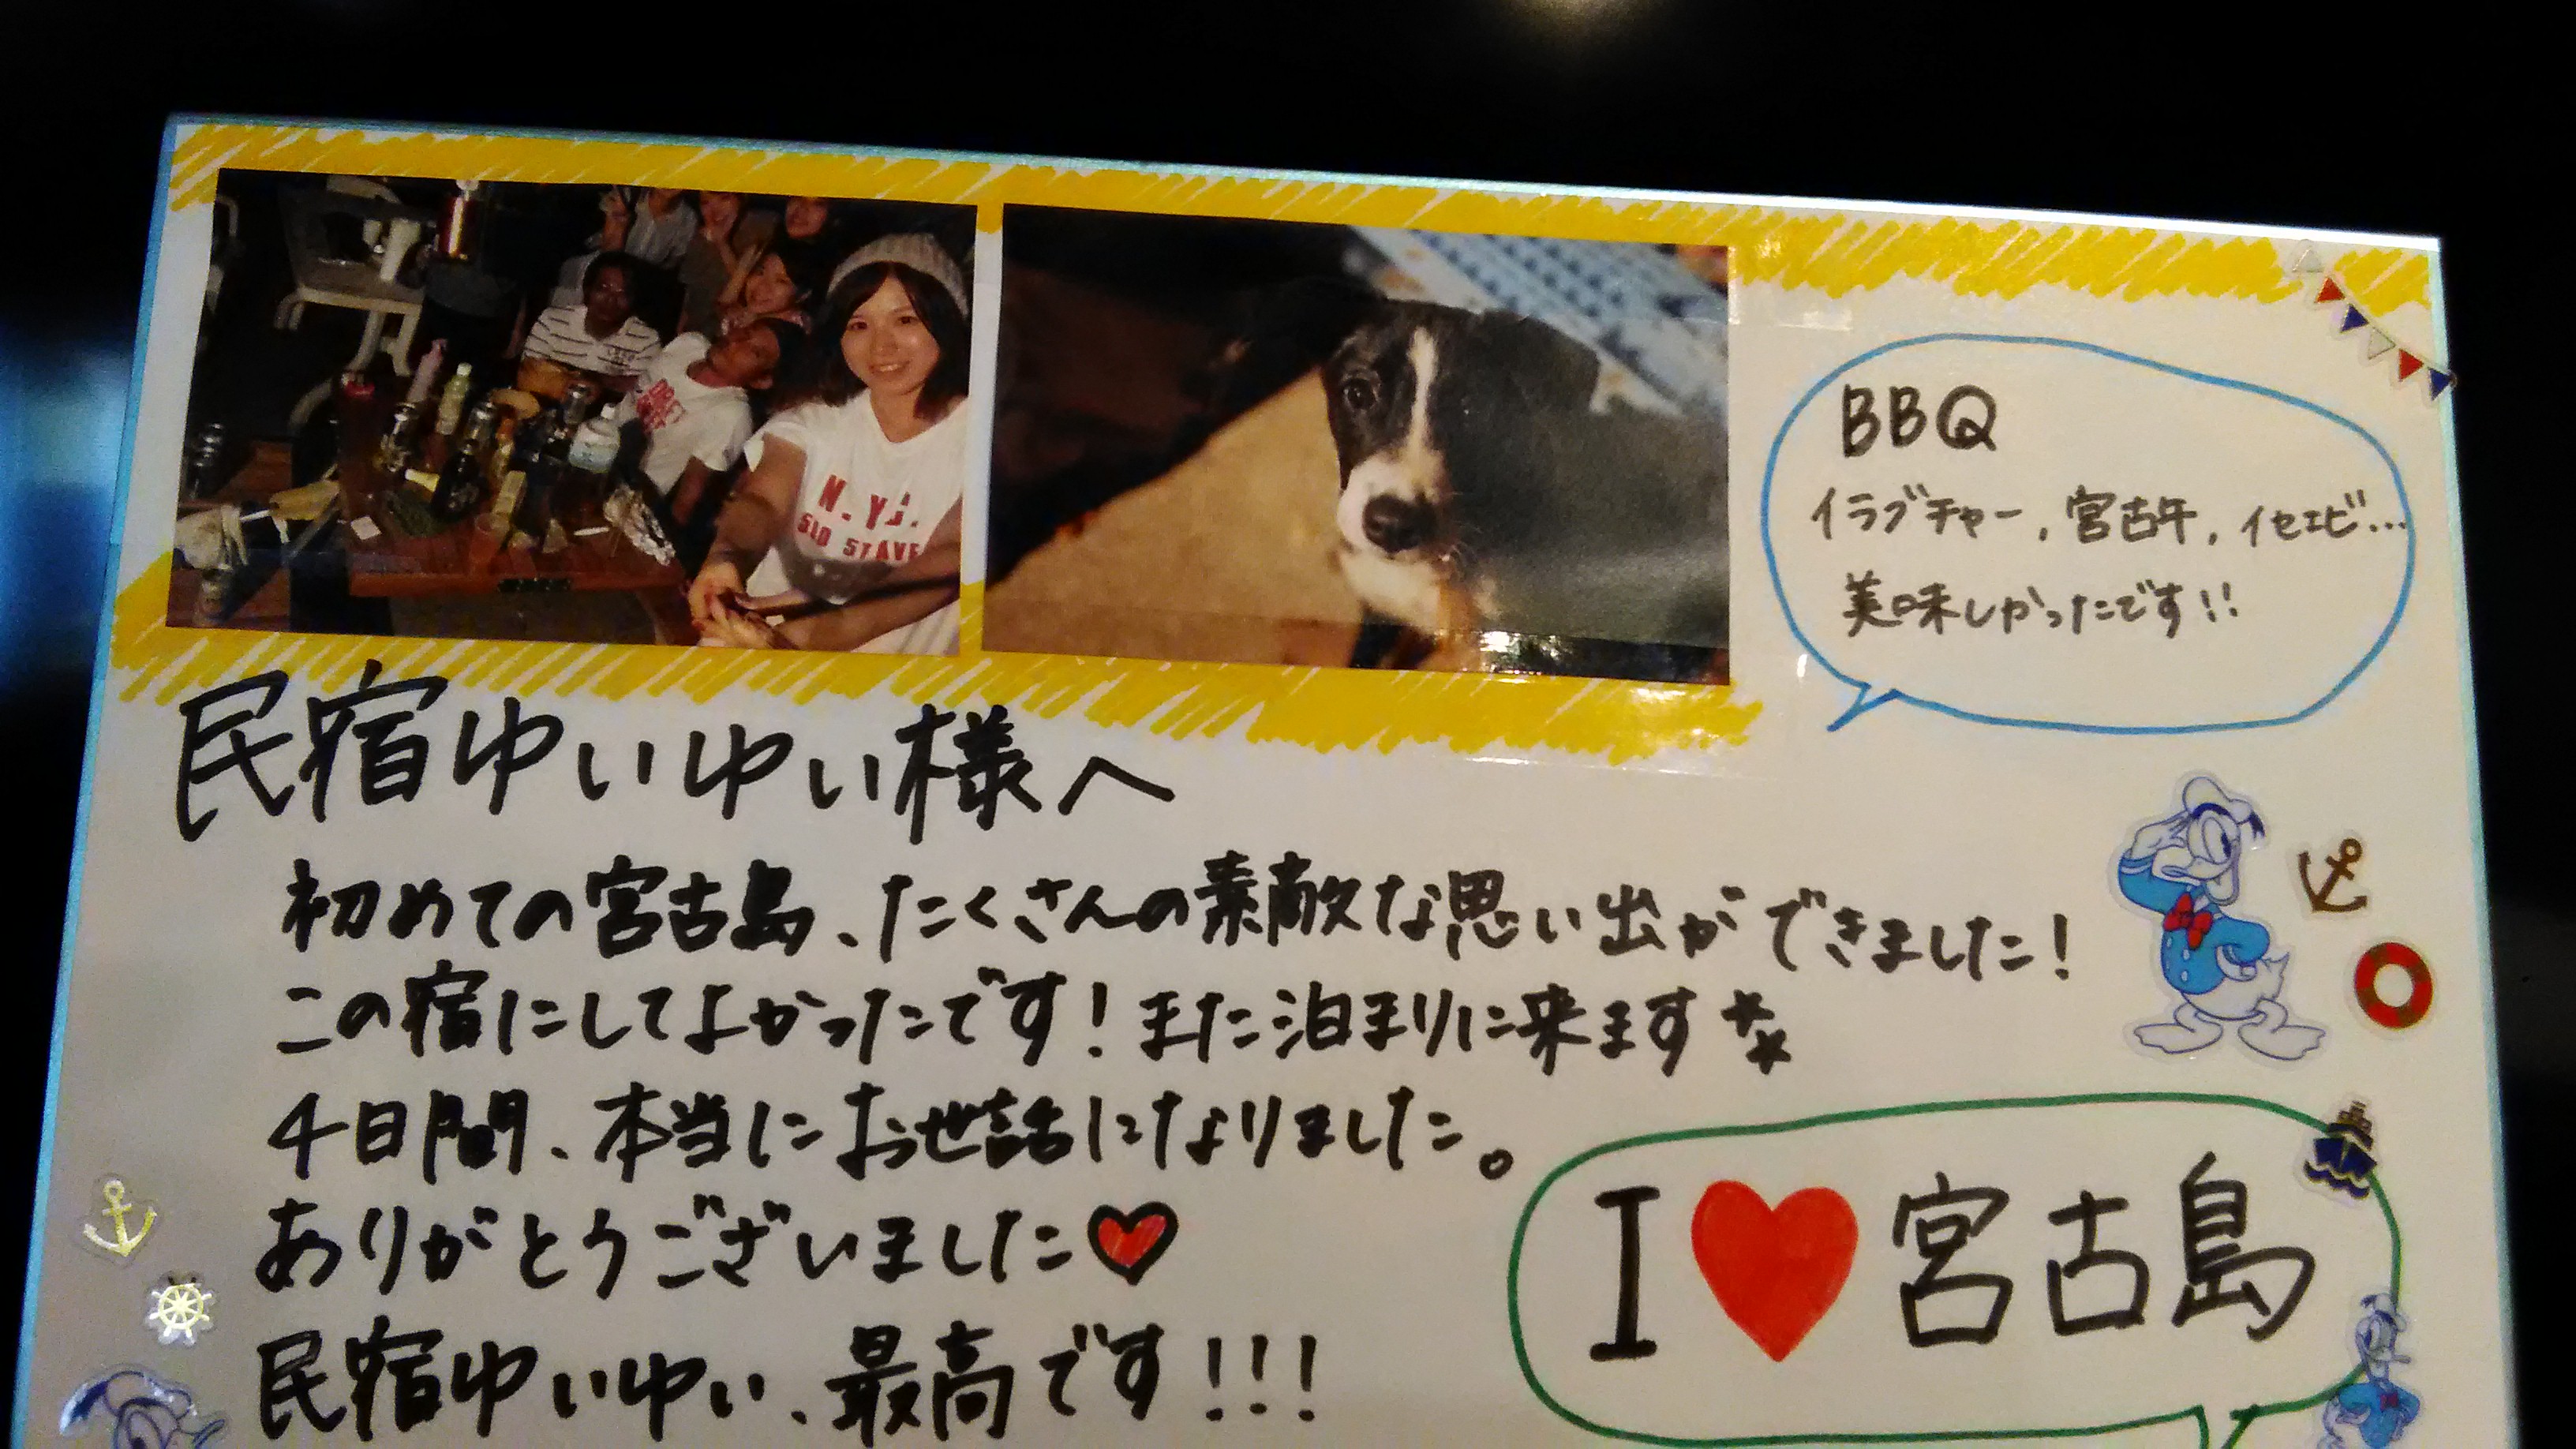 BBQ
イラブチャー、宮古牛、イセエビ…
美味しかったです!!
民宿ゆいゆい様へ
初めての宮古島、たくさんの素敵な思い出ができました!
この宿にしてよかったです!また泊まりに来ます
4日間、本当にお世話になりました。
ありがとうございました♥
民宿ゆいゆい、最高です!!!
I ♥ 宮古島